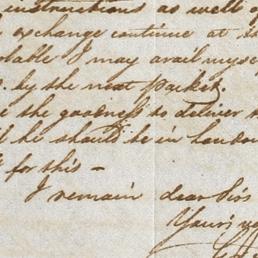 instructions as well of
exchange continue at th
bable I may avail myse
by the next packet.
e the goodness to deliver
he should be in London
for this –
I remain dear Sirs
Yours